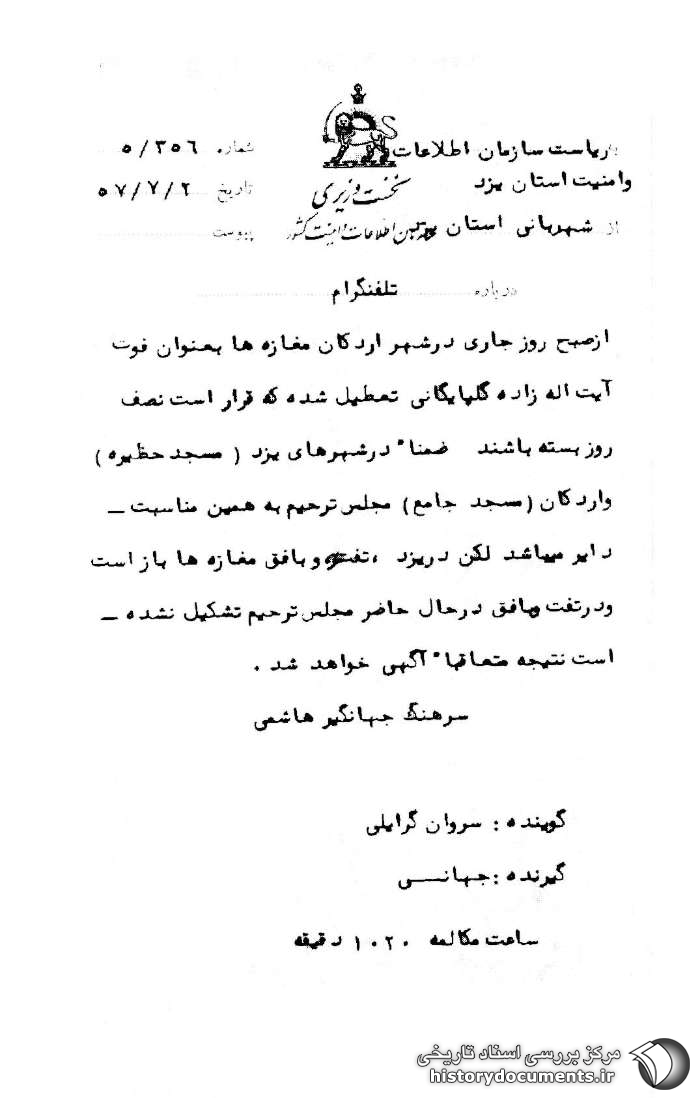 بریاست سازمان اطلاعات
وامنیت استان یزد
از شهربانی استان یزد
نخست وزیری
سازمان اطلاعات و امنیت کشور
شماره ۵/۳۵۶
تاریخ ۵۷/۷/۲
پیوست
درباره تلفنگرام
ازصبح روز جاری درشهر اردکان مغازه ها بعنوان فوت
آیت اله زاده گلپایگانی تعطیل شده که قرار است نصف
روز بسته باشند ضمناً درشهرهای یزد ( مسجد حظیره )
واردکان (مسجد جامع) مجلس ترحیم به همین مناسبت ـ
دایر میباشد لکن دریزد ، تفت و بافق مغازه ها باز است
ودرتفت وبافق درحال حاضر مجلس ترحیم تشکیل نشده ـ
است نتیجه متعاقباً آگهی خواهد شد .
سرهنگ جهانگیر هاشمی
گوینده : سروان گرایلی
گیرنده : جهانـــی
ساعت مکالمه ۱۰۲۰ دقیقه
مرکز بررسی اسناد تاریخی
historydocuments.ir